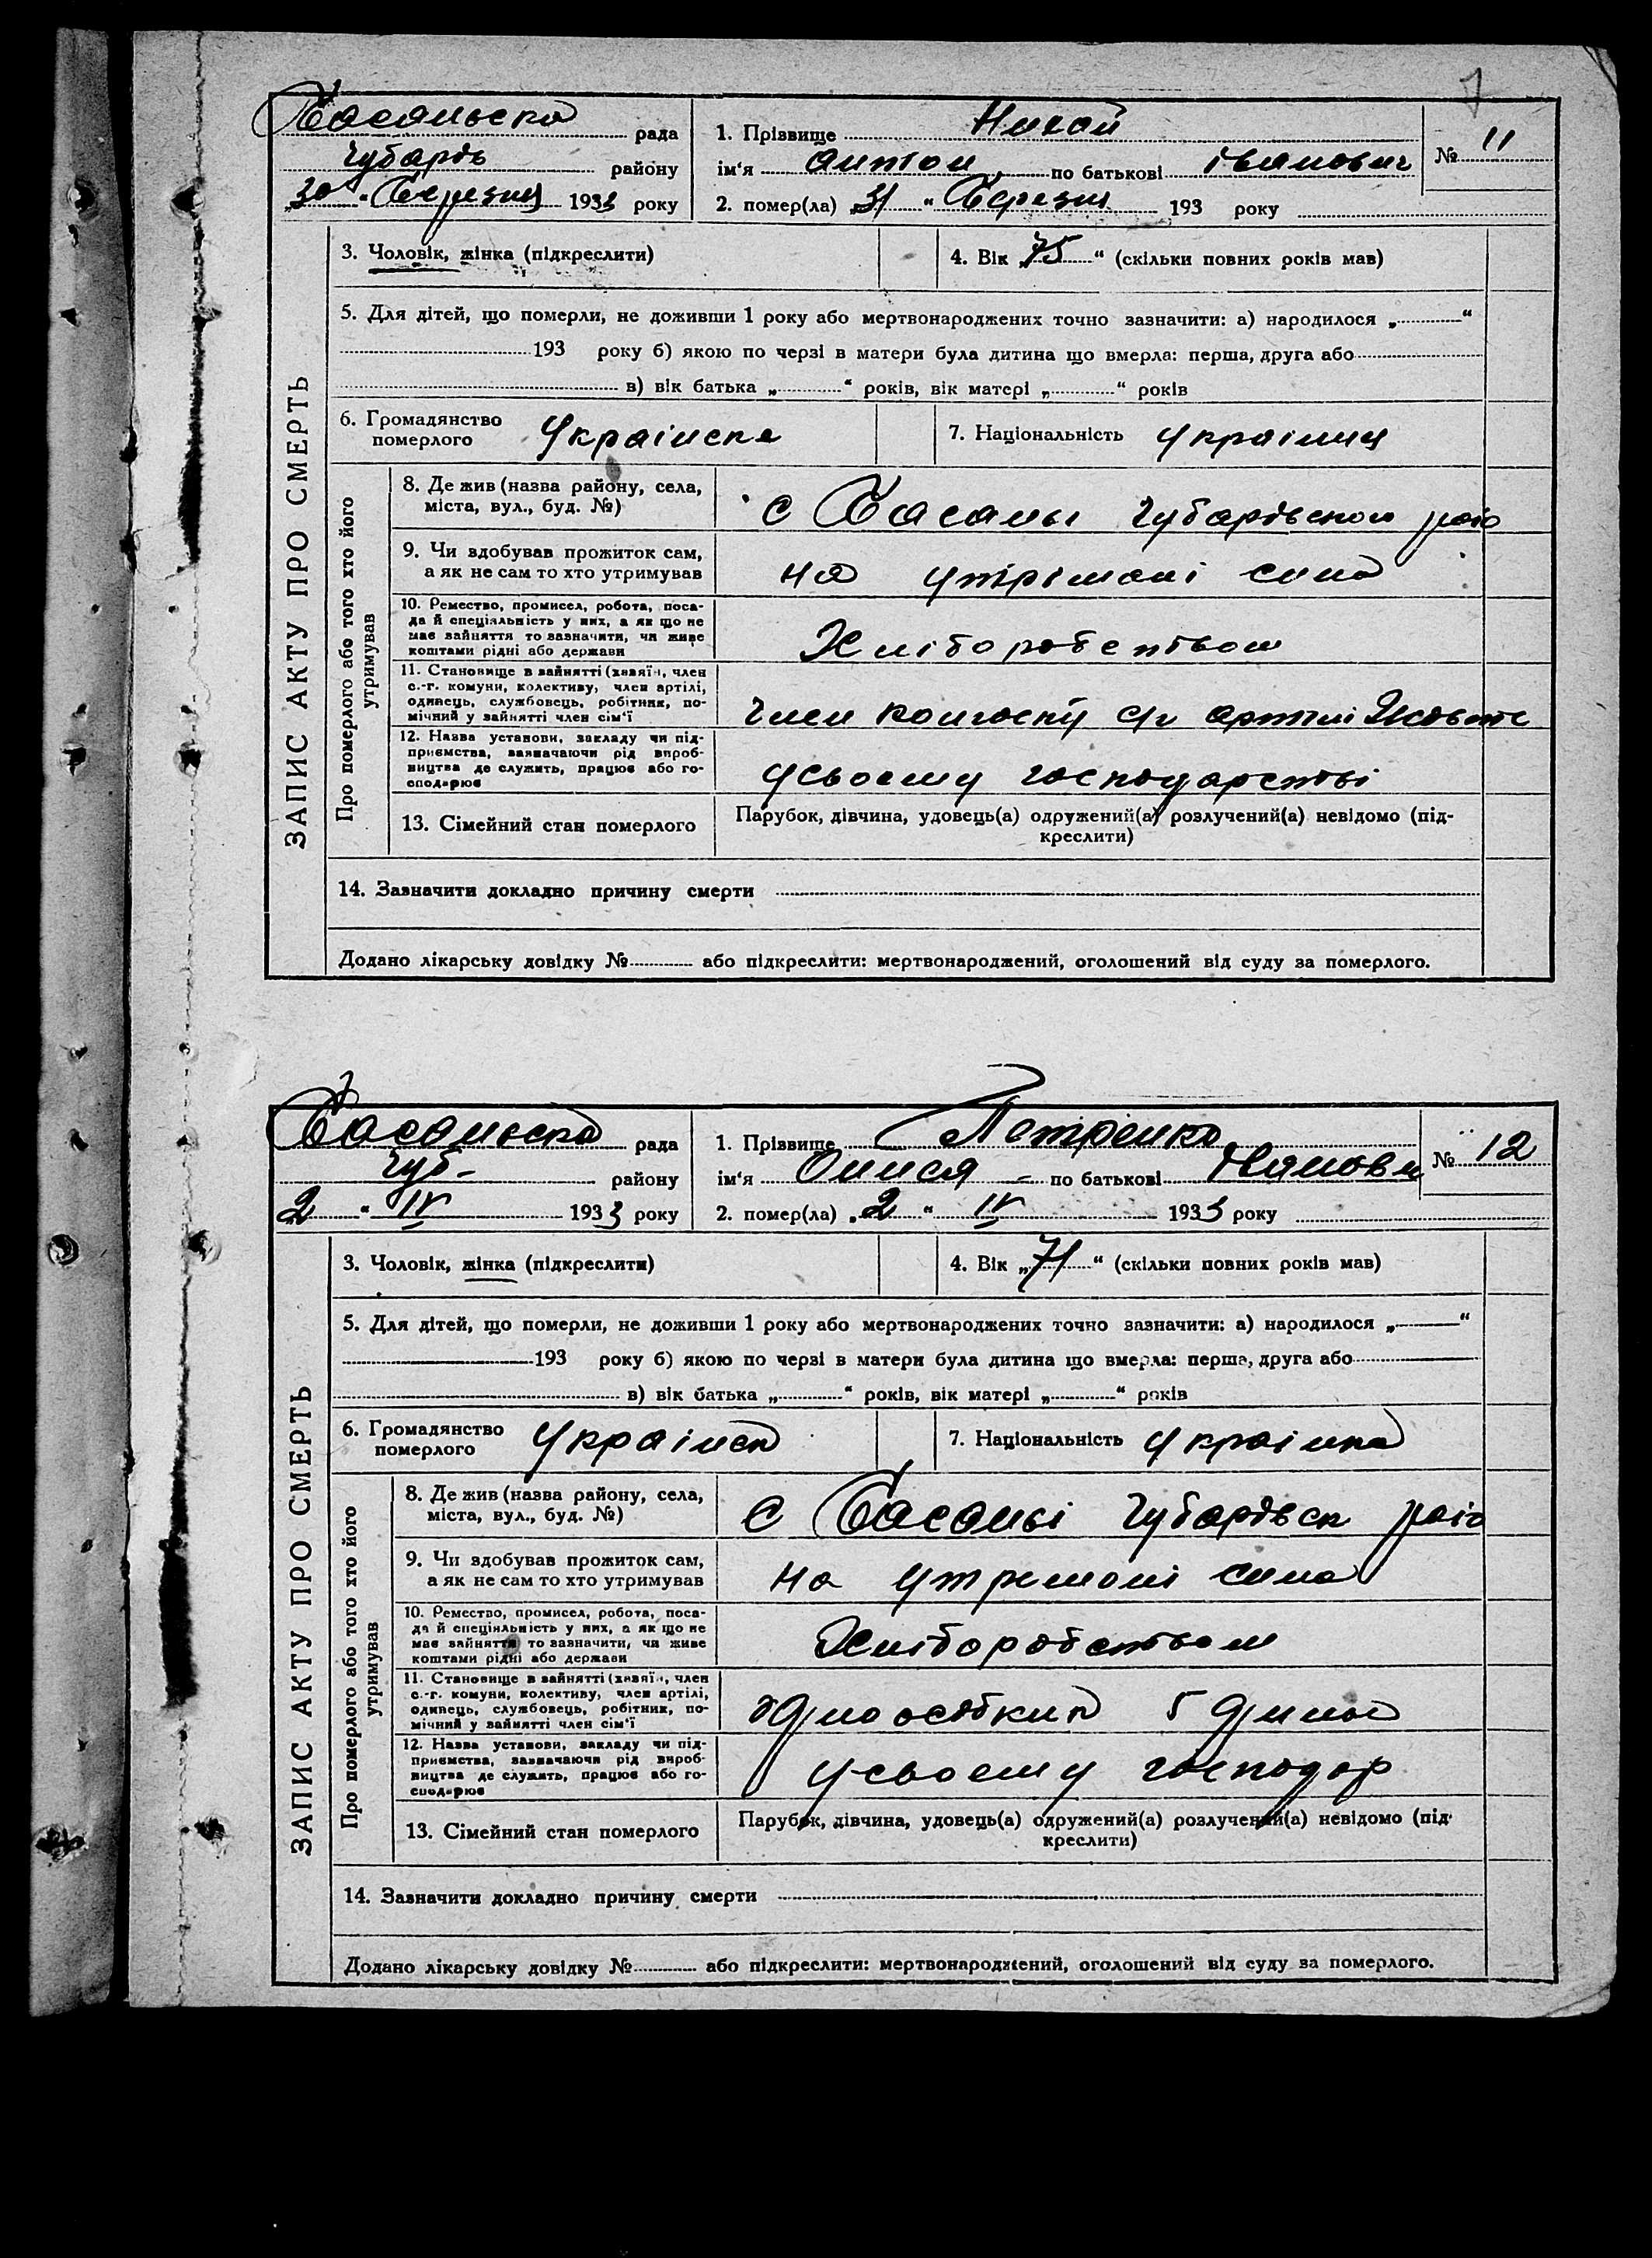 7
Басанська рада
Чубарів району
„30" Березня 1933 року
1. Прізвище Нихай
ім'я Антон по батькові Іванович
№ 11
2. помер(ла) „31" Березня 193 року
ЗАПИС АКТУ ПРО СМЕРТЬ
3. Чоловік, жінка (підкреслити)
4. Вік „75" (скільки повних років мав)
5. Для дітей, що померли, не доживши 1 року або мертвонароджених точно зазначити: а) народилося „ "
193 року б) якою по черзі в матери була дитина що вмерла: перша, друга або
в) вік батька „ " років, вік матері „ " років
6. Громадянство
померлого Українське
7. Національність Українця
Про померлого або того хто його
утримував
8. Де жив (назва району, села,
міста, вул., буд. №)
с Басань Чубарівском раіо
9. Чи здобував прожиток сам,
а як не сам то хто утримував
на утрімані сина
10. Ремество, промисел, робота, поса-
да й спеціяльність у них, а як що не
має зайняття то зазначити, чи живе
коштами рідні або держави
Хліборобством
11. Становище в зайнятті (хазяїн, член
с.-г. комуни, колективу, член артілі,
одинець, службовець, робітник, по-
мічний у зайнятті член сім'ї
член колгоспу с/г артілі
12. Назва установи, закладу чи під-
приємства, зазначаючи рід вироб-
ництва де служить, працює або го-
сподарює
усвоему господарстві
13. Сімейний стан померлого
Парубок, дівчина, удовець(а) одружений(а) розлучений(а) невідомо (під-
креслити)
14. Зазначити докладно причину смерти
Додано лікарську довідку № або підкреслити: мертвонароджений, оголошений від суду за померлого.
Басанська рада
Чуб- району
„2" IV 1933 року
1. Прізвище Петренко
ім'я Олися по батькові Іванови
№ 12
2. помер(ла) „2" IV 1933 року
ЗАПИС АКТУ ПРО СМЕРТЬ
3. Чоловік, жінка (підкреслити)
4. Вік „71" (скільки повних років мав)
5. Для дітей, що померли, не доживши 1 року або мертвонароджених точно зазначити: а) народилося „ "
193 року б) якою по черзі в матери була дитина що вмерла: перша, друга або
в) вік батька „ " років, вік матері „ " років
6. Громадянство
померлого Українск
7. Національність Українка
Про померлого або того хто його
утримував
8. Де жив (назва району, села,
міста, вул., буд. №)
с Басаньі Чубарівск раіо
9. Чи здобував прожиток сам,
а як не сам то хто утримував
на утремані сина
10. Ремество, промисел, робота, поса-
да й спеціяльність у них, а як що не
має зайняття то зазначити, чи живе
коштами рідні або держави
Хліборобством
11. Становище в зайнятті (хазяїн, член
с.-г. комуни, колективу, член артілі,
одинець, службовець, робітник, по-
мічний у зайнятті член сім'ї
12. Назва установи, закладу чи під-
приємства, зазначаючи рід вироб-
ництва де служить, працює або го-
сподарює
усвоему господар
13. Сімейний стан померлого
Парубок, дівчина, удовець(а) одружений(а) розлучений(а) невідомо (під-
креслити)
14. Зазначити докладно причину смерти
Додано лікарську довідку № або підкреслити: мертвонароджений, оголошений від суду за померлого.